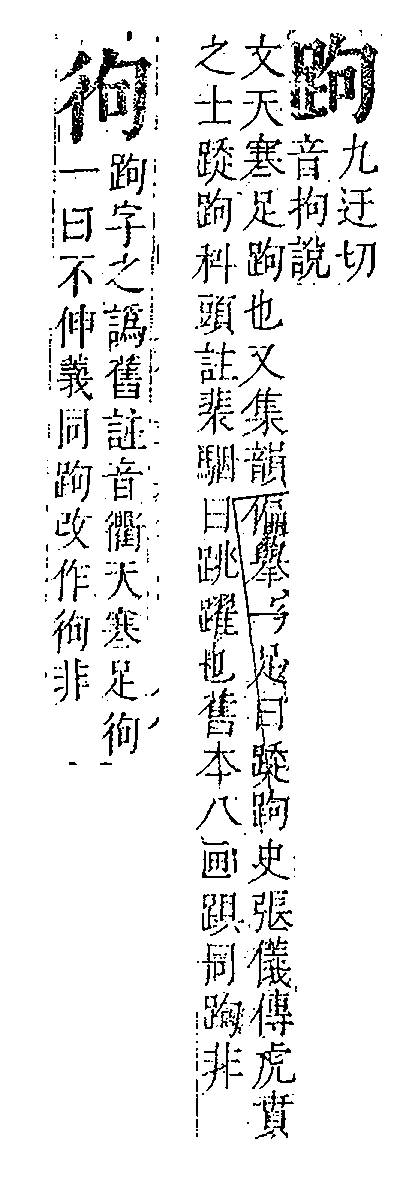 跔
九迂切
音拘說
文天寒足跔也又集韻偏舉一足曰跿跔史張儀傳虎賁
之士跿跔科頭註裴駰曰跳躍也舊本八画同跔非
跔字之譌舊註音衢天寒足
一曰不伸義同跔改作非